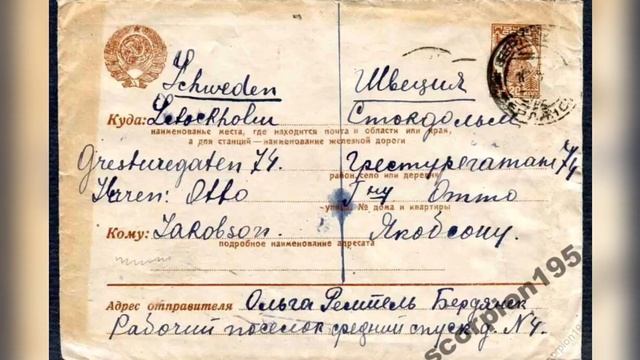 Schweden Швеция
Куда: Stockholm Стокдольм
наименованье места, где находится почта и области или края,
а для станций—наименование железной дороги
Gresturegaten 74. Грестурегатан 74
район, село или деревня
Herren: Otto Гну Отто
№ дома и квартиры
Кому: Jakobson. Якобсону.
подробное наименование адресата
Адрес отправителя Ольга Ремпель Бердянск
Рабочий поселок средний спуск д. N4.
scorpion195
scorpion195